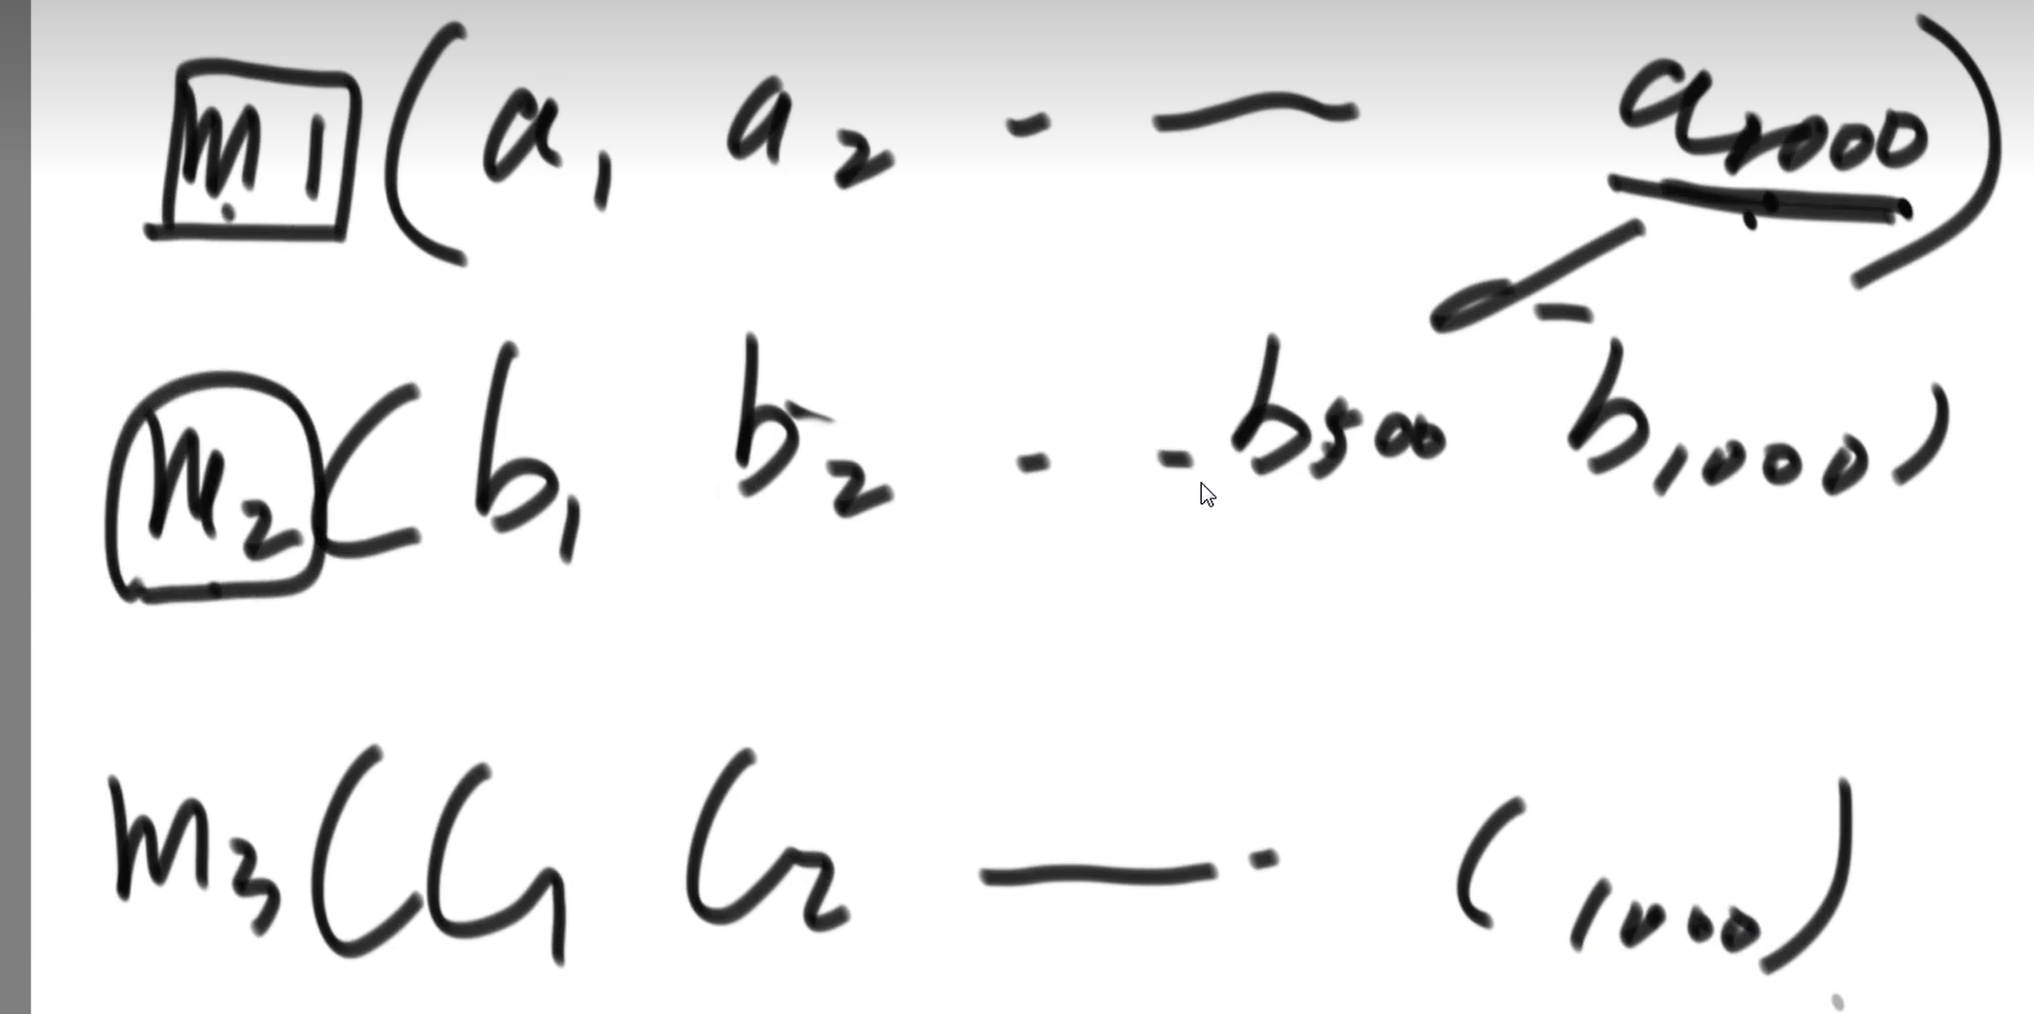 m1 (a1 a2 - — a1000)
m2 (b1 b2 - - b500 b1000)
m3 (C1 C2 — - C1000)